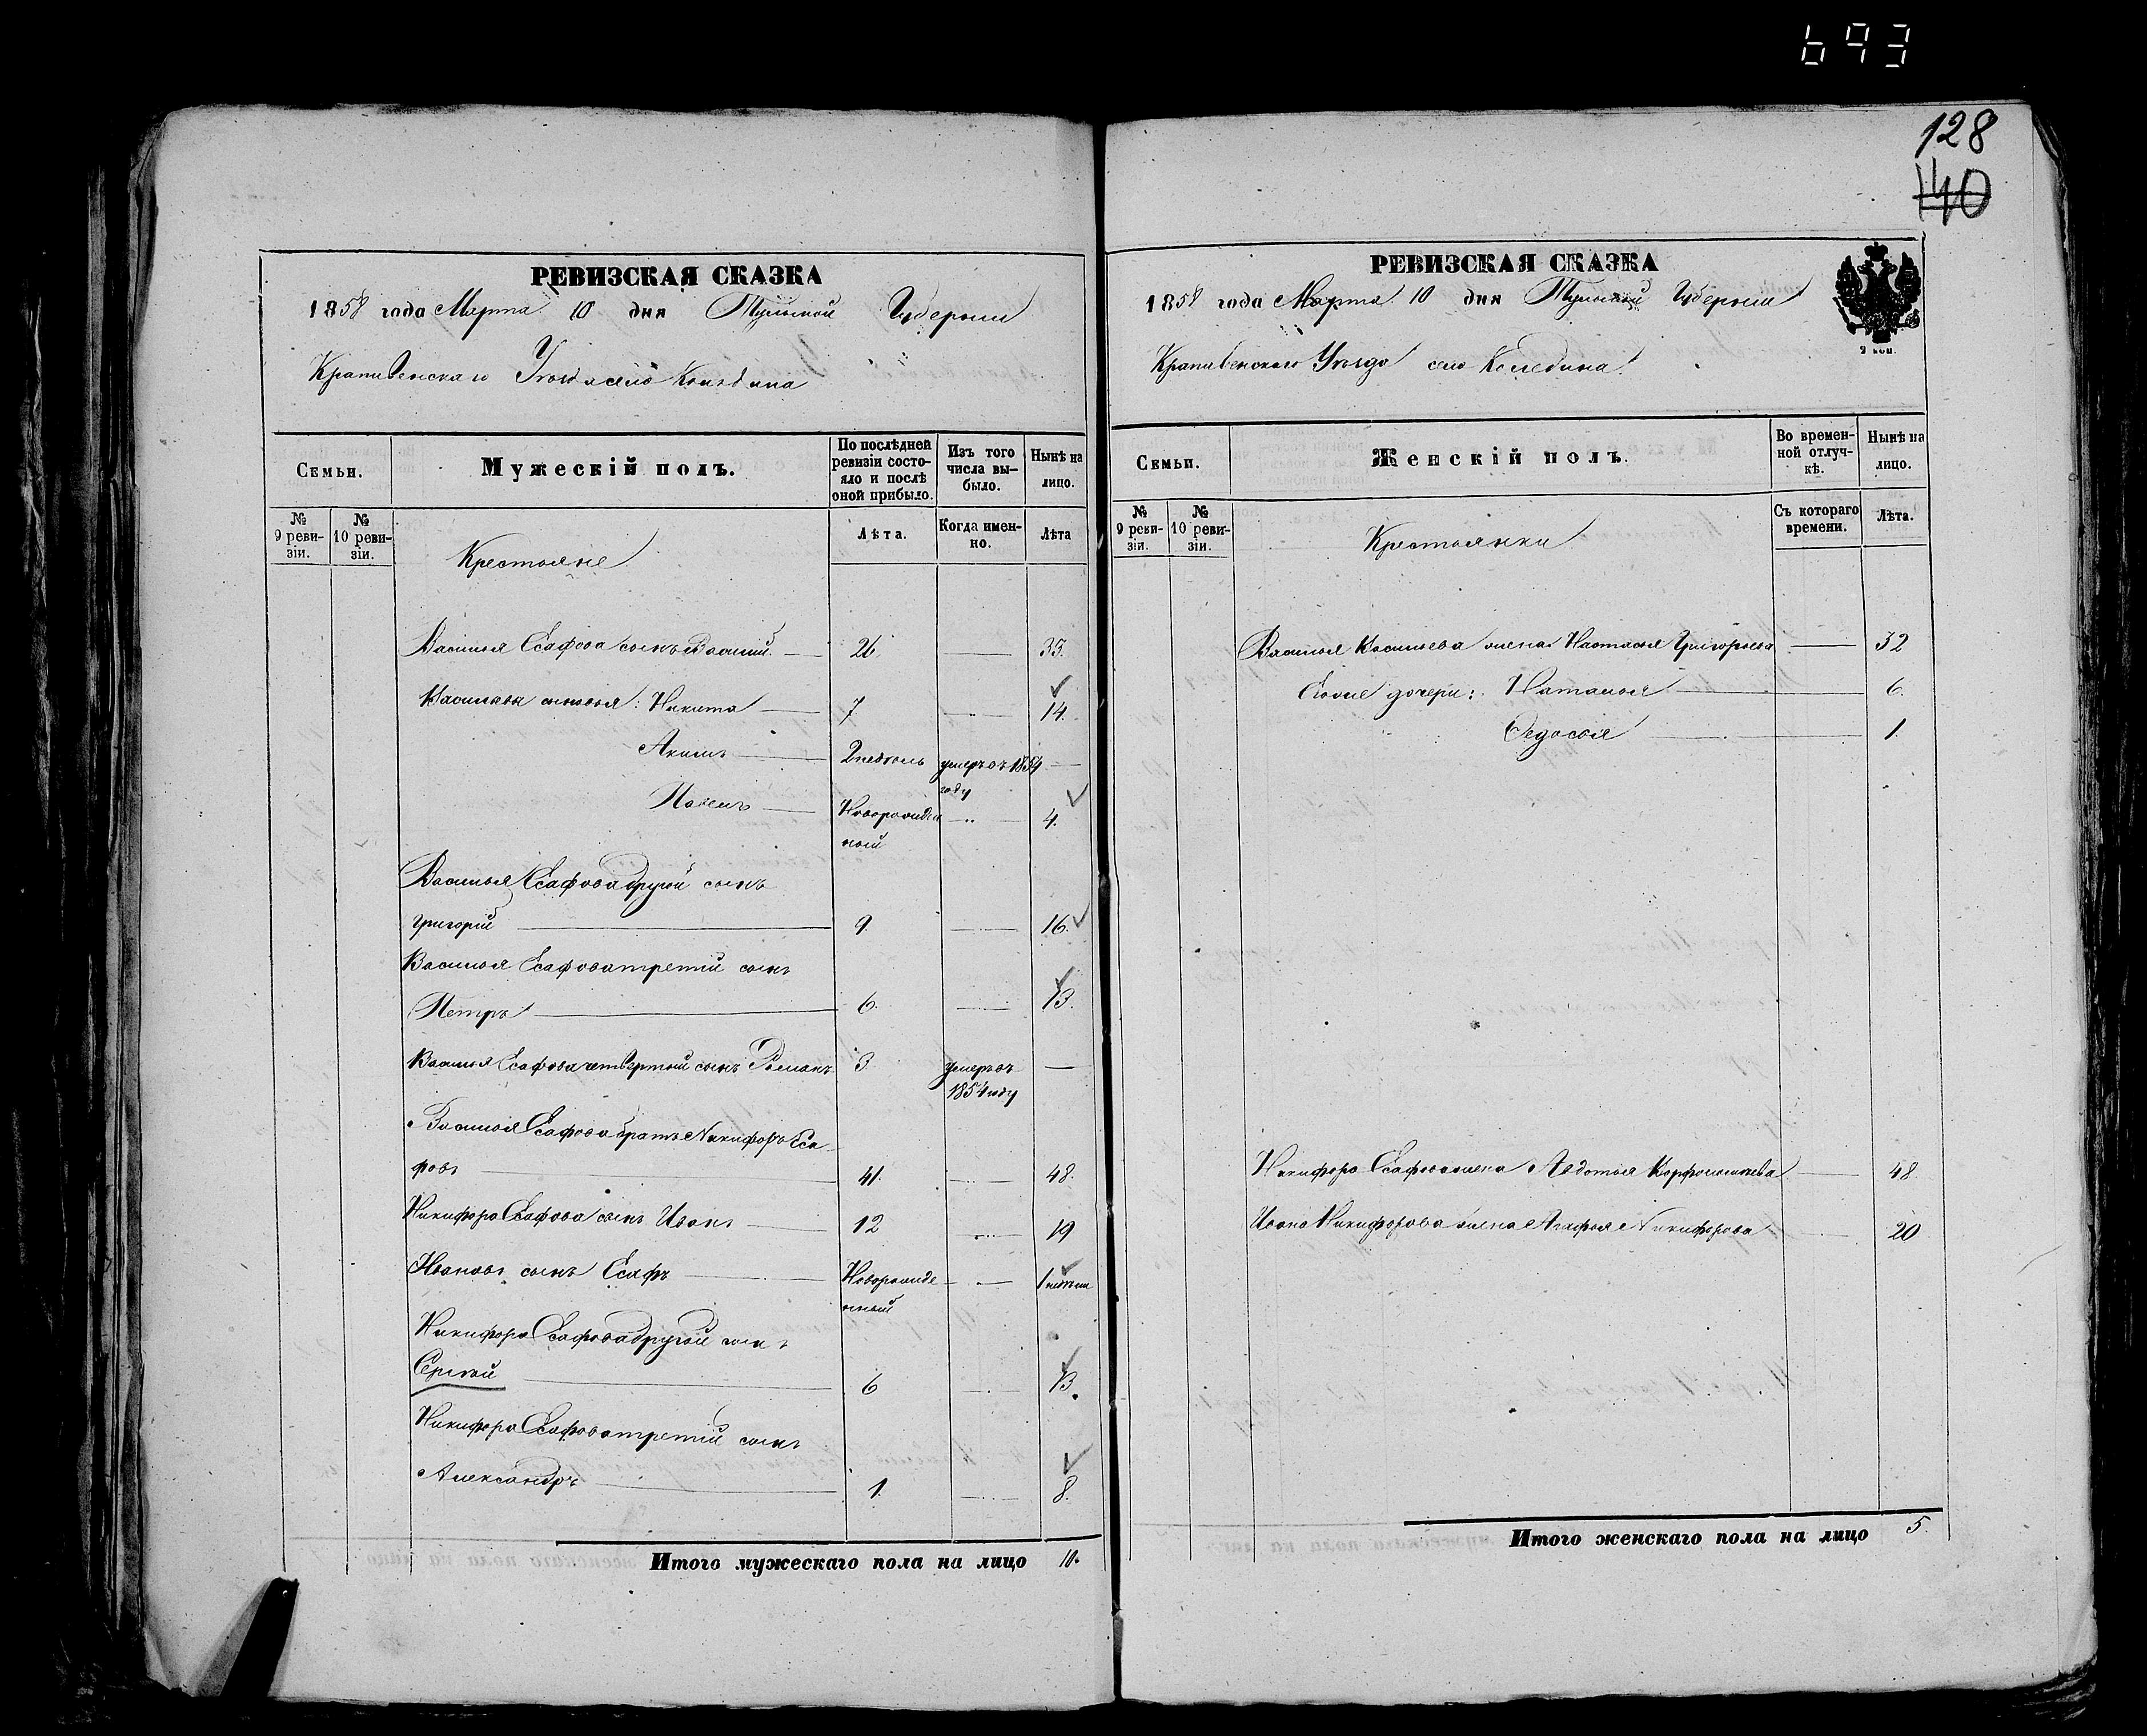 693
128
140
РЕВИЗСКАЯ СКАЗКА
1858 года Марта 10 дня Тульской Губернiи
Крапивенскаго Уѣзда село
Семьи.
Мужескiй полъ.
По послѣдней ревизiи состояло и послѣ оной прибыло.
Изъ того числа выбыло.
Нынѣ на лицо.
№ 9 ревизiи.
№ 10 ревизiи.
Крестьяне
Лѣта.
Когда именно.
Лѣта
Василья Есафова сынъ Василiй — 26 — 33.
Васильевы сыновья: Никита — 7 — 14.
Акимъ — 2 недѣль умеръ въ 1854 —
году
Новорожден — " — 4.
ный
Василья Есафова другой сынъ
Григорiй — 9. — 16.
Василья Есафова третiй сынъ
Петръ — 6. — 13.
Василья Есафова четвертый сынъ Романъ 3 умеръ въ —
1854 году
Василья Есафова братъ Никифоръ Еса-
фовъ — 41. — 48.
Никифора Есафова сынъ Иванъ — 12 — 19
Ивановъ сынъ Есафъ — Новорожде — 1
нный
Никифора Есафова другой сынъ
Сергѣй — 6 — 13.
Никифора Есафова третiй сынъ
Александръ — 1. — 8.
Итого мужескаго пола на лицо 10.
РЕВИЗСКАЯ СКАЗКА
1858 года Марта 10 дня Тульской Губернiи
Крапивенскаго Уѣзда село
2 коп.
Семьи.
Женскiй полъ.
Во временной отлучкѣ.
Нынѣ на лицо.
№ 9 ревизiи.
№ 10 ревизiи.
Крестьянки
Съ котораго времени.
Лѣта.
Василья Васильева жена Настасья Григорьева — 32
дочери: Наталья — 6.
Федосья — 1.
Никифора Есафова жена Авдотья — 48
Ивана Никифорова жена Агафья Никифорова — 20
Итого женскаго пола на лицо 5.